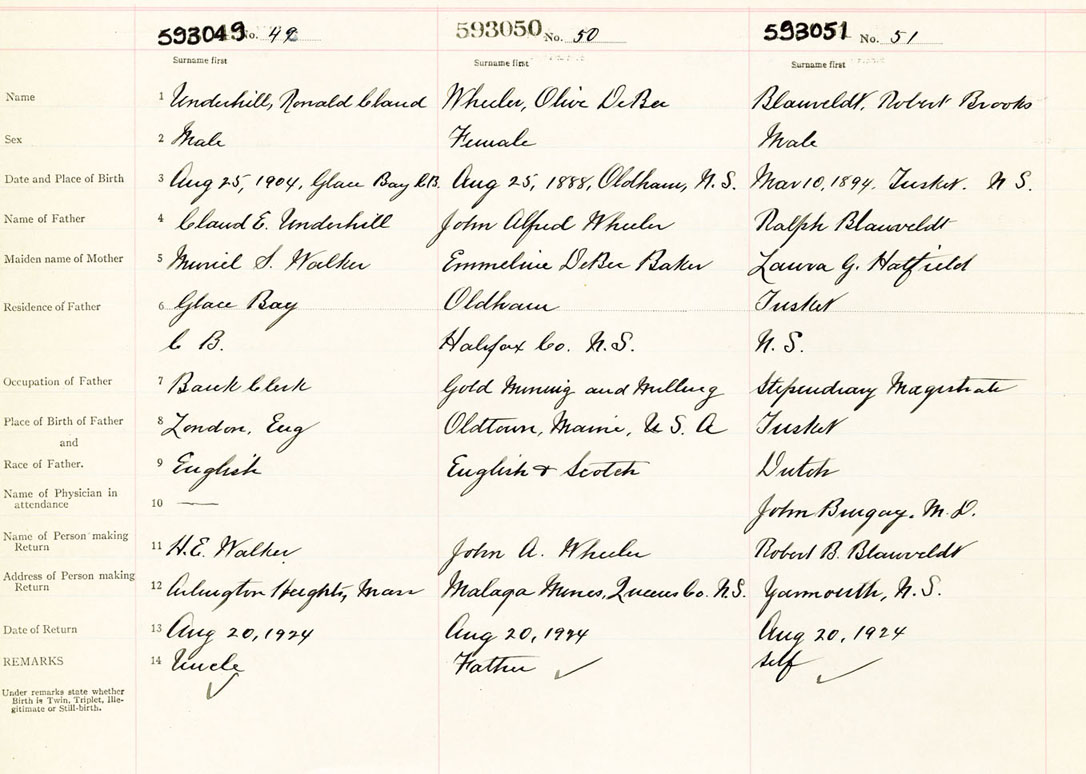 593049 No. 49 593050 No. 50 593051 No. 51
Surname first Surname first Surname first
Name 1 Underhill, Ronald Claud Wheeler, Olive DeBee Blauveldt, Robert Brooks
Sex 2 Male Female Male
Date and Place of Birth 3 Aug 25, 1904, Glace Bay C.B. Aug 25, 1888, Oldham, N.S. Mar 10, 1894. Tusket. N S.
Name of Father 4 Claud E. Underhill John Alfred Wheeler Ralph Blauveldt
Maiden name of Mother 5 Muriel S. Walker Emmeline DeBee Baker Laura G. Hatfield
Residence of Father 6 Glace Bay Oldham Tusket
C B. Halifax Co. N.S. N.S.
Occupation of Father 7 Bank Clerk Gold Mining and Milling Stipendiary Magistrate
Place of Birth of Father 8 London, Eng Oldtown, Maine, U.S.A Tusket
and
Race of Father. 9 English English & Scotch Dutch
Name of Physician in
attendance 10 — John Bingay. M.D.
Name of Person making
Return 11 H.E. Walker John A. Wheeler Robert B. Blauveldt
Address of Person making
Return 12 Arlington Heights, Mass Malaga Mines, Queens Co. N.S. Yarmouth, N.S.
Date of Return 13 Aug 20, 1924 Aug 20, 1924 Aug 20, 1924
REMARKS 14 Uncle Father ✓ Self ✓
✓
Under remarks state whether
Birth is Twin, Triplet, Ille-
gitimate or Still-birth.